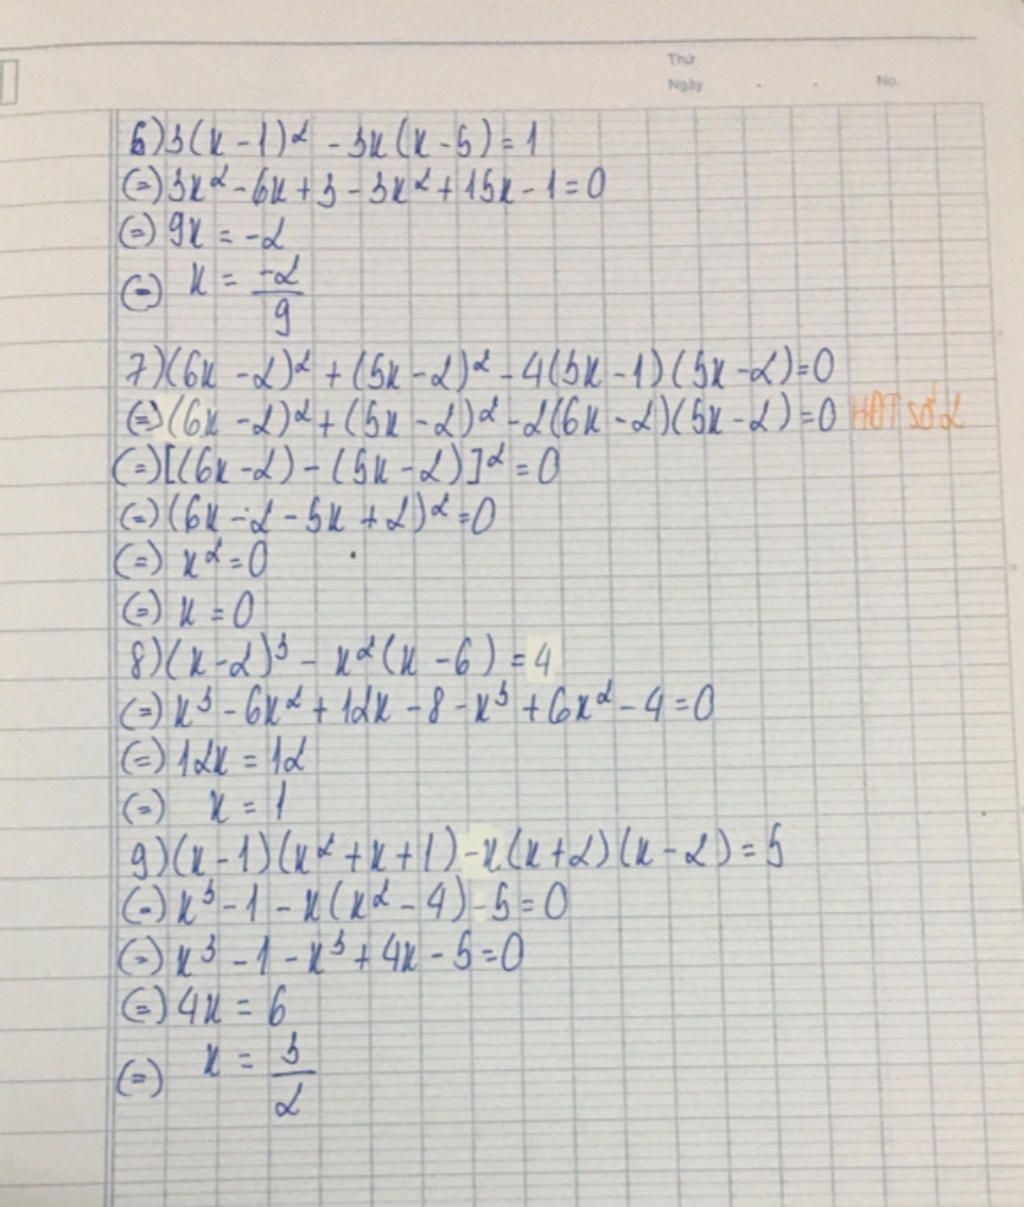 Thứ
Ngày . . No.
6) 3(x - 1)² - 3x(x - 5) = 1
(=) 3x² - 6x + 3 - 3x² + 15x - 1 = 0
(=) 9x = -2
(=) x = -2/9
7) (6x - 2)² + (5x - 2)² - 4(3x - 1)(5x - 2) = 0
(=) (6x - 2)² + (5x - 2)² - 2(6x - 2)(5x - 2) = 0 HĐT số 2
(=) [(6x - 2) - (5x - 2)]² = 0
(=) (6x - 2 - 5x + 2)² = 0
(=) x² = 0
(=) x = 0
8) (x - 2)³ - x²(x - 6) = 4
(=) x³ - 6x² + 12x - 8 - x³ + 6x² - 4 = 0
(=) 12x = 12
(=) x = 1
9) (x - 1)(x² + x + 1) - x(x + 2)(x - 2) = 5
(=) x³ - 1 - x(x² - 4) - 5 = 0
(=) x³ - 1 - x³ + 4x - 5 = 0
(=) 4x = 6
(=) x = 3/2